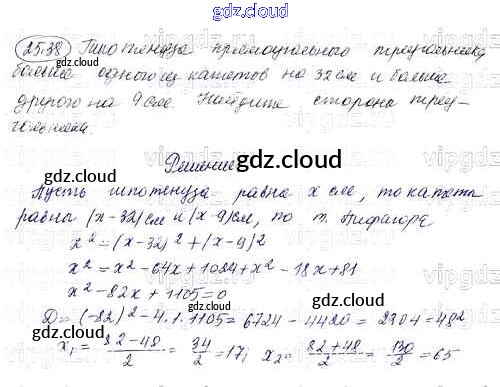 gdz.cloud
25.38 Гипотенуза прямоугольного треугольника
gdz.cloud
больше одного из катетов на 32 см и больше
другого на 9 см. Найдите стороны треу-
гольника.
gdz.cloud
Решение
gdz.cloud
Пусть гипотенуза равна x см, то катеты
равны (x-32) см и (x-9) см, по т. Пифагора
x² = (x-32)² + (x-9)²
x² = x² - 64x + 1024 + x² - 18x + 81
x² - 82x + 1105 = 0
D = (-82)² - 4·1·1105 = 6724 - 4420 = 2304 = 48²
x₁ = (82-48)/2 = 34/2 = 17; x₂ = (82+48)/2 = 130/2 = 65
gdz.cloud
gdz.cloud